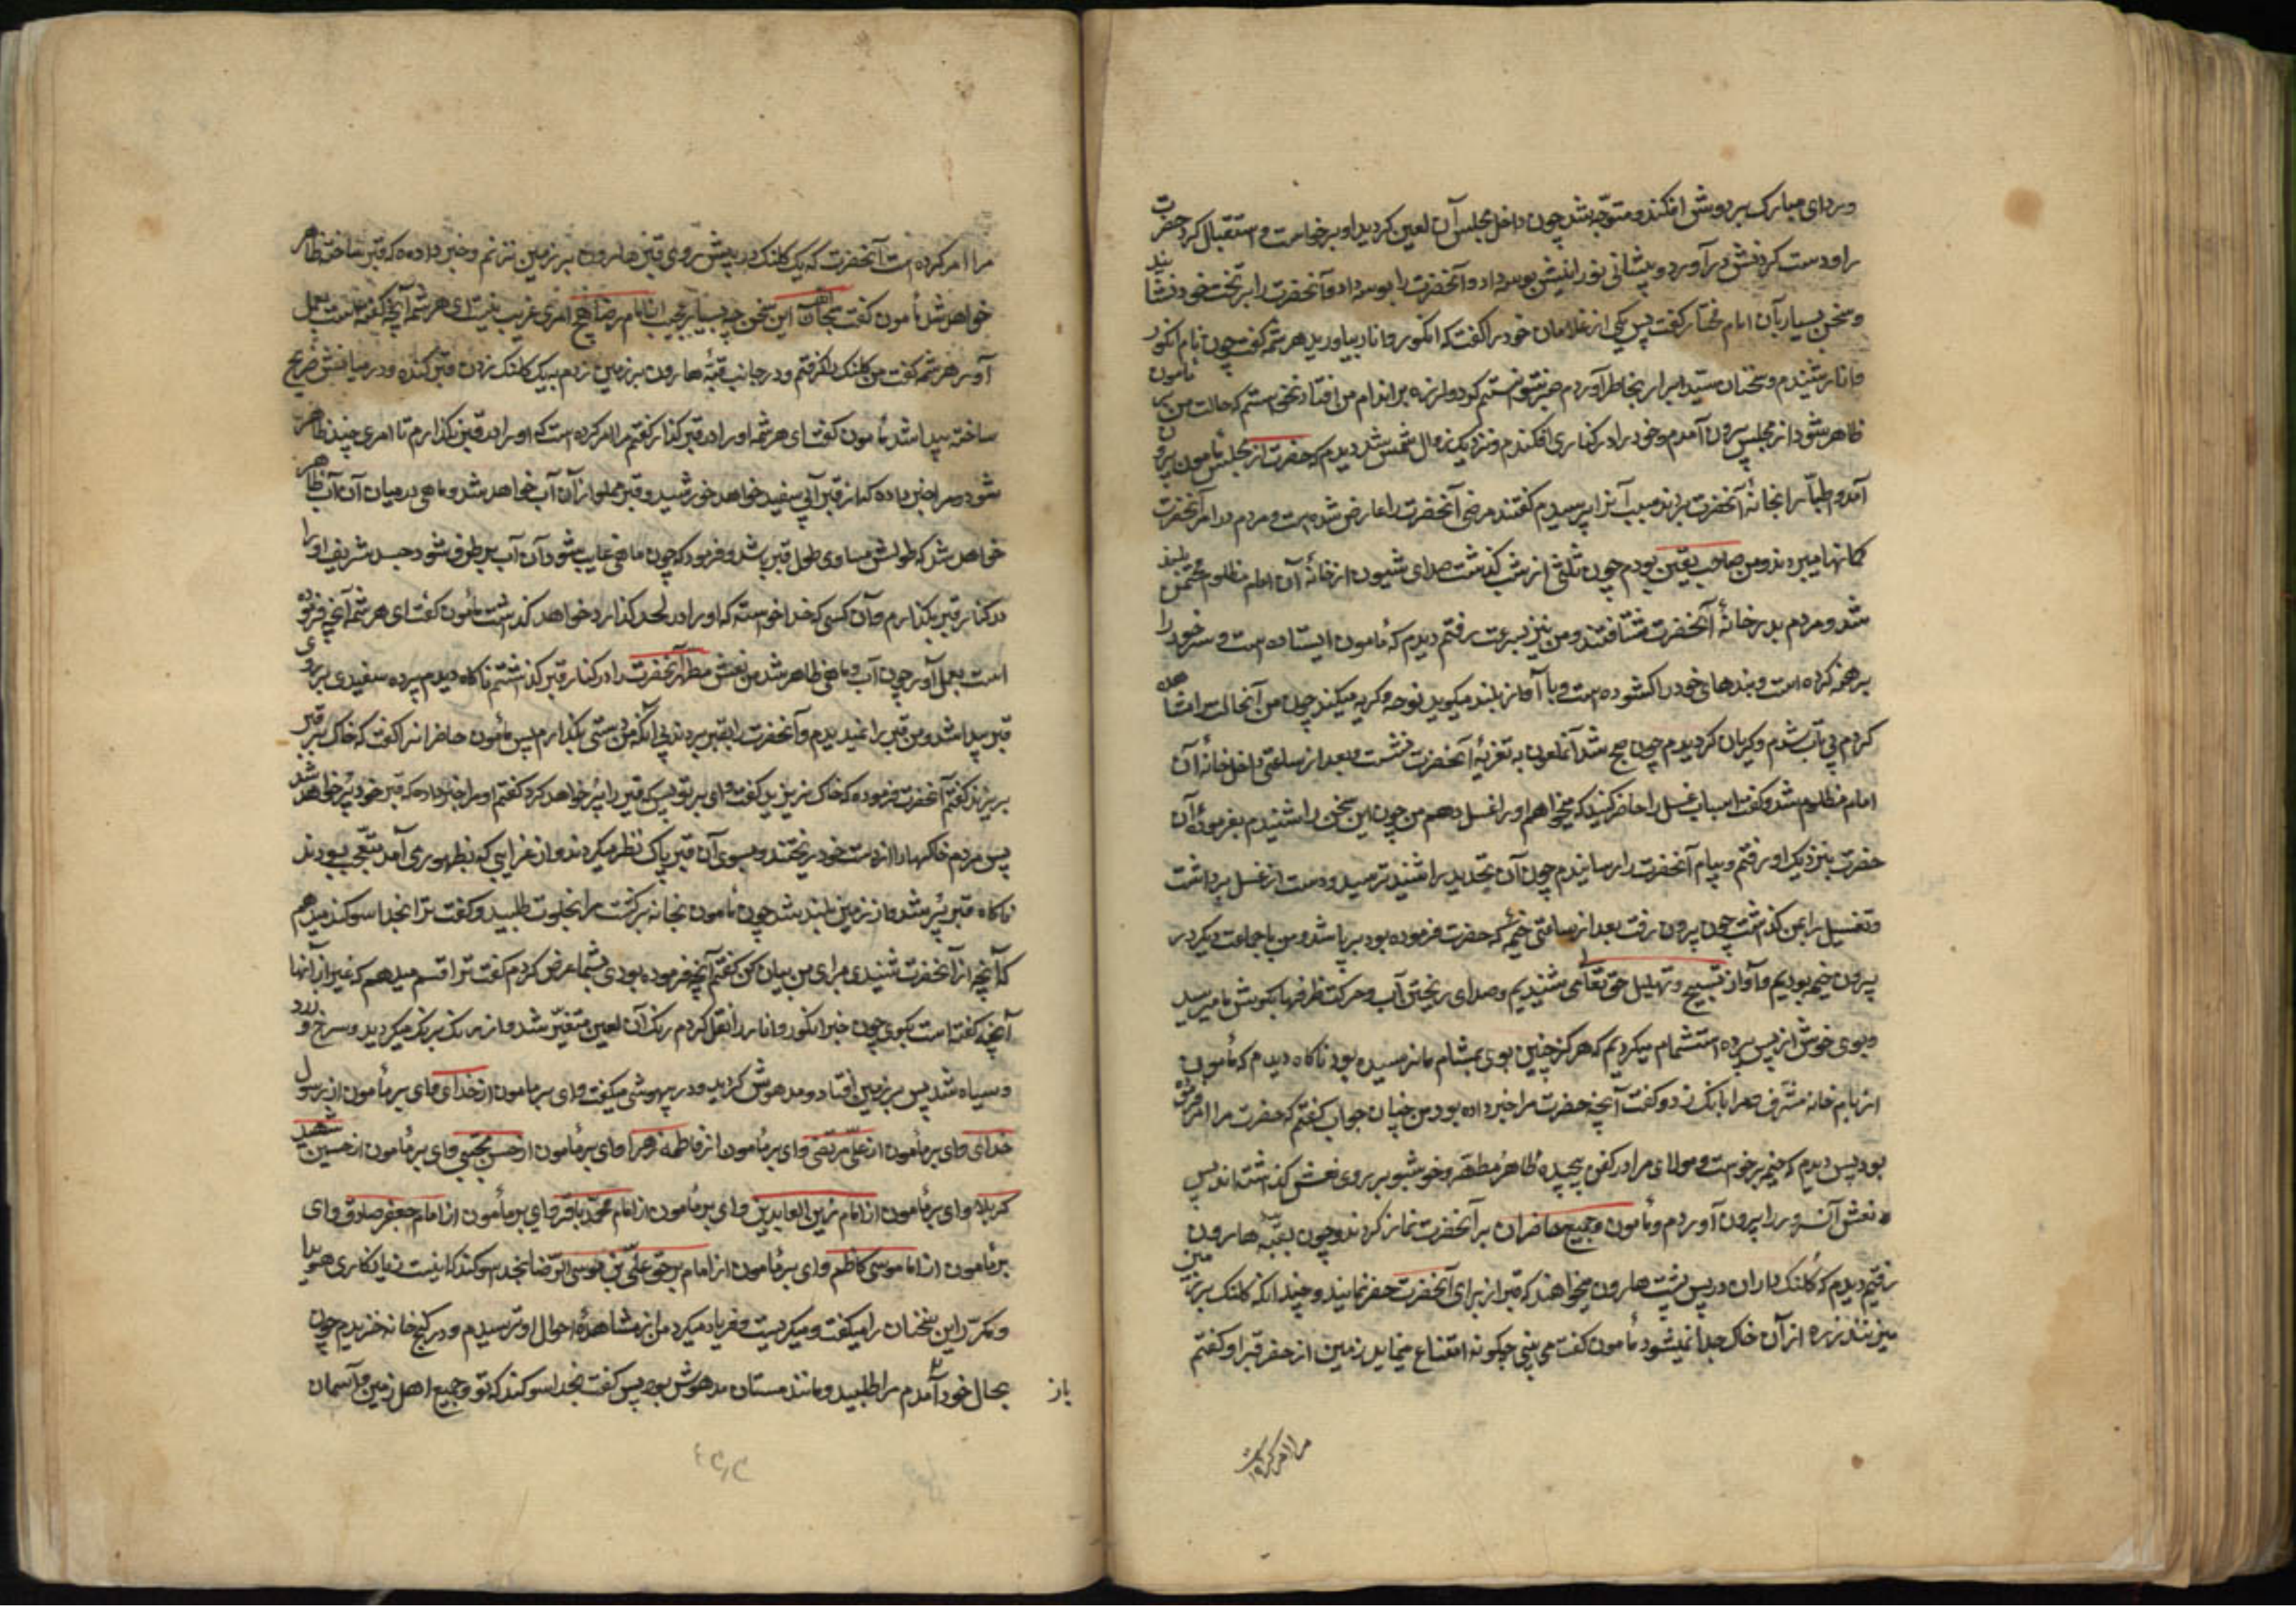 وردای مبارک بر دوش افکند و متوجه شد چون داخل مجلس آن لعین کردید او برخاست و استقبال کرد حضرت
را و دست کردنش در آورد و پیشانی نورانیش بوسه داد و آنحضرت را بر تخت خود نشانید
و سخن بسیار بآن امام مختار کفت پس یکی از غلامان خود را کفت که انکور و انار بیاورید هرثمه کفت چون نام انکور
و انار شنیدم و سخنان سید ابرار بخاطر آوردم صبر نتوانستم کرد و لرزه بر اندام من افتاد نخواستم که حالت من بر مامون
ظاهر شود از مجلس بیرون آمدم و خود را در کناری افکندم و نزدیک زوال شمس شد دیدم که حضرت از مجلس مامون بیرون
آمد و طبّا را بخانهٔ آنحضرت بردند سبب آنرا پرسیدم کفتند مرضی آنحضرت را عارض شده است و مردم در امر آنحضرت
کمانها میبردند و من صاحب یقین بودم چون ثلثی از شب کذشت صدای شیون از خانهٔ آن امام مظلوم ممتحن بلند
شد و مردم بدر خانهٔ آنحضرت شتافتند و من نیز بسرعت رفتم دیدم که مأمون ایستاده است و سر خود را
برهنه کرده است و بندهای خود را کشوده است و با آواز بلند میکوید نوحه و کریه میکند چون من آنحالت را مشاهده
کردم بی تاب شدم و کریان کردیدم چون صبح شد آنملعون به تعزیهٔ آنحضرت نشست و بعد از ساعتی داخل خانهٔ آن
امام مظلوم شد و کفت اسباب غسل را حاضر کنید که میخواهم او را غسل دهم من چون این سخن را شنیدم بفرمودهٔ آن
حضرت بنزدیک او رفتم و پیام آنحضرت را رسانیدم چون آن تهدید را شنید ترسید و دست از غسل برداشت
و تغسیل را بمن کذاشت چون بیرون رفت بعد از ساعتی خیمهٔ که حضرت فرموده بود برپا شد و من با جماعت دیکر در
بیرون خیمه بودیم و آواز تسبیح و تهلیل حق تعالی می شنیدیم و صدای ریختن آب و حرکت ظرفها بکوش ما میرسید
و بوی خوش از پس پرده استشمام میکردیم که هرکز چنین بوی بمشام ما نرسیده بود ناکاه دیدم که مأمون
از بام خانه مشرف صدا بانک زد و کفت آنچه حضرت مرا خبر داده بود من چنان جواب کفتم که حضرت مرا امر فرموده
بود پس دیدم که خیمه برخواست و مولای مرا در کفن پیچیده طاهر مطهر و خوشبو بر روی نعش کذاشته اند پس
نعش آن سرور را بیرون آوردم و مأمون و جمیع حاضران بر آنحضرت نماز کردند و چون بقبّه هارون
رفتیم دیدم که کلنک داران در پس پشت هارون میخواهند که قبر از برای آنحضرت حفر نمایند و چندانکه کلنک بر زمین
میزنند ذره از آن خاک جدا نمیشود مأمون کفت می بینی چکونه امتناع مینماید زمین از حفر قبر او کفتم
مرا امر کرده است
مرا امر کرده است آنحضرت که یک کلنک در پیش روی قبر هارون بر زمین بزنم و خبر داده که قبر ساخته ظاهر
خواهد شد مأمون کفت سبحان الله این سخن چه بسیار عجیب اما از امام رضا هیچ امری غریب نیست ای هرثمه آنچه کفته است بعمل
آور هرثمه کفت من کلنک را کرفتم و در جانب قبلهٔ هارون بر زمین زدم بیک کلنک زدن قبر کنده و در میانش ضریح
ساخته پیدا شد مأمون کفت ای هرثمه او را در قبر کذار کفتم مرا امر کرده است که او را در قبر نکذارم تا امری چند ظاهر
شود و مرا خبر داده که از قبر آبی سفید خواهد جوشید و قبر مملو از آن آب خواهد شد و ماهی در میان آن آب ظاهر
خواهد شد که طولش مساوی طول قبر باشد و فرمود که چون ماهی غایب شود و آن آب برطرف شود جسد شریف او را
در کنار قبر بکذارم و آن کسی که خدا خواسته که او را در لحد کذارد خواهد کذاشت مأمون کفت ای هرثمه آنچه فرموده
است بعمل آور چون آب و ماهی ظاهر شد من نعش مطهر آنحضرت را در کنار قبر کذاشتم ناکاه دیدم پرده سفیدی بر روی
قبر پیدا شد و من قبر را نمیدیدم و آنحضرت را بقبر بردند بی آنکه من دستی بکذارم پس مأمون حاضرانرا کفت که خاک بر قبر
بریزند کفتم آنحضرت فرموده که خاک نریزید کفت وای بر تو پس که قبر را پر خواهد کرد کفتم او مرا خبر داده که قبر خود پر خواهد شد
پس مردم خاکها را از دست خود ریختند و بسوی آن قبر پاک نظر میکردند و از غرایبی که بظهور می آمد متعجب بودند
ناکاه قبر پُر شد و از زمین بلند شد چون مأمون بخانه برکشت مرا بخلوت طلبید و کفت ترا بخدا سوکند میدهم
که آنچه از آنحضرت شنیدی برای من بیان کن کفتم آنچه فرموده بودی بشما عرض کردم کفت ترا قسم میدهم که غیر از آنها
آنچه کفته است بکوی چون خبر انکور و انار را نقل کردم رنک آن لعین متغیّر شد و از رنک برنک میکردید و سرخ و زرد
و سیاه شد پس بر زمین افتاد و مدهوش کردید و در بیهوشی میکفت وای بر مامون از خدای وای بر مأمون از رسول
خدای وای بر مأمون از علی مرتضی وای بر مأمون از فاطمه زهرا وای بر مأمون از حسن مجتبی وای بر مأمون از حسین شهید
کربلا وای بر مأمون از امام زین العابدین وای بر مأمون از امام محمد باقر وای بر مأمون از امام جعفر صادق وای
بر مأمون از امام موسی کاظم وای بر مأمون از امام بحق علی بن موسی الرضا بخدا سوکند که اینست زیانکاری هویدا
و مکرّر این سخنان را میکفت و میکریست و فریاد میکرد من از مشاهدهٔ احوال او ترسیدم و در کنج خانه خزیدم چون
بحال خود آمد مرا طلبید و مانند مستان مدهوش بود پس کفت بخدا سوکند که تو و جمیع اهل زمین و آسمان
باز